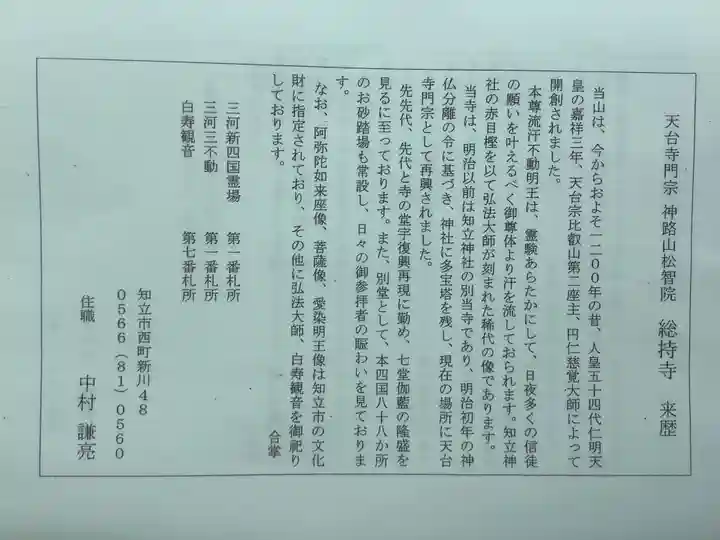 天台寺門宗 神路山松智院 総持寺 来歴
当山は、今からおよそ一二〇〇年の昔、人皇五十四代仁明天
皇の嘉祥三年、天台宗比叡山第二座主、円仁慈覚大師によって
開創されました。
本尊流汗不動明王は、霊験あらたかにして、日夜多くの信徒
の願いを叶えるべく御尊体より汗を流しておられます。知立神
社の赤目樫を以て弘法大師が刻まれた稀代の像であります。
当寺は、明治以前は知立神社の別当寺であり、明治初年の神
仏分離の令に基づき、神社に多宝塔を残し、現在の場所に天台
寺門宗として再興されました。
先先代、先代と寺の堂宇復興再現に勤め、七堂伽藍の隆盛を
見るに至っております。また、別堂として、本四国八十八か所
のお砂踏場も常設し、日々の御参拝者の賑わいを見ておりま
す。
なお、阿弥陀如来座像、菩薩像、愛染明王像は知立市の文化
財に指定されており、その他に弘法大師、白寿観音を御祀り
しております。
合掌
三河新四国霊場 第一番札所
三河三不動 第一番札所
白寿観音 第七番札所
知立市西町新川48
0566(81)0560
住職 中村 謙亮